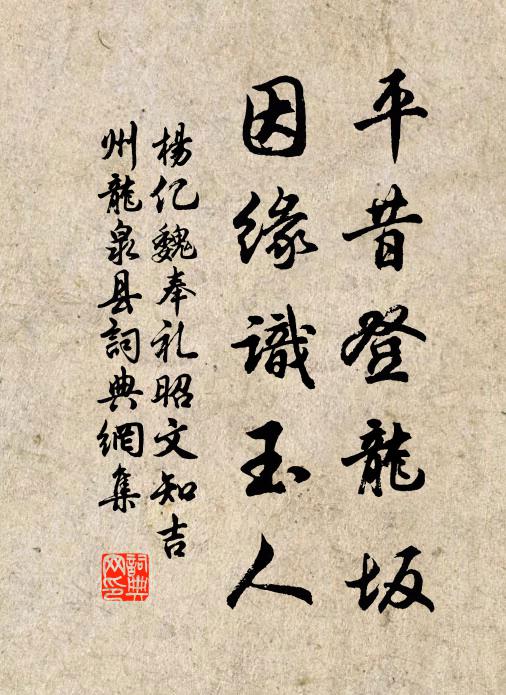 平昔登龍坂
因緣識玉人
楊亿魏奉礼昭文知吉
州龍泉县詞典網集
詞典網印